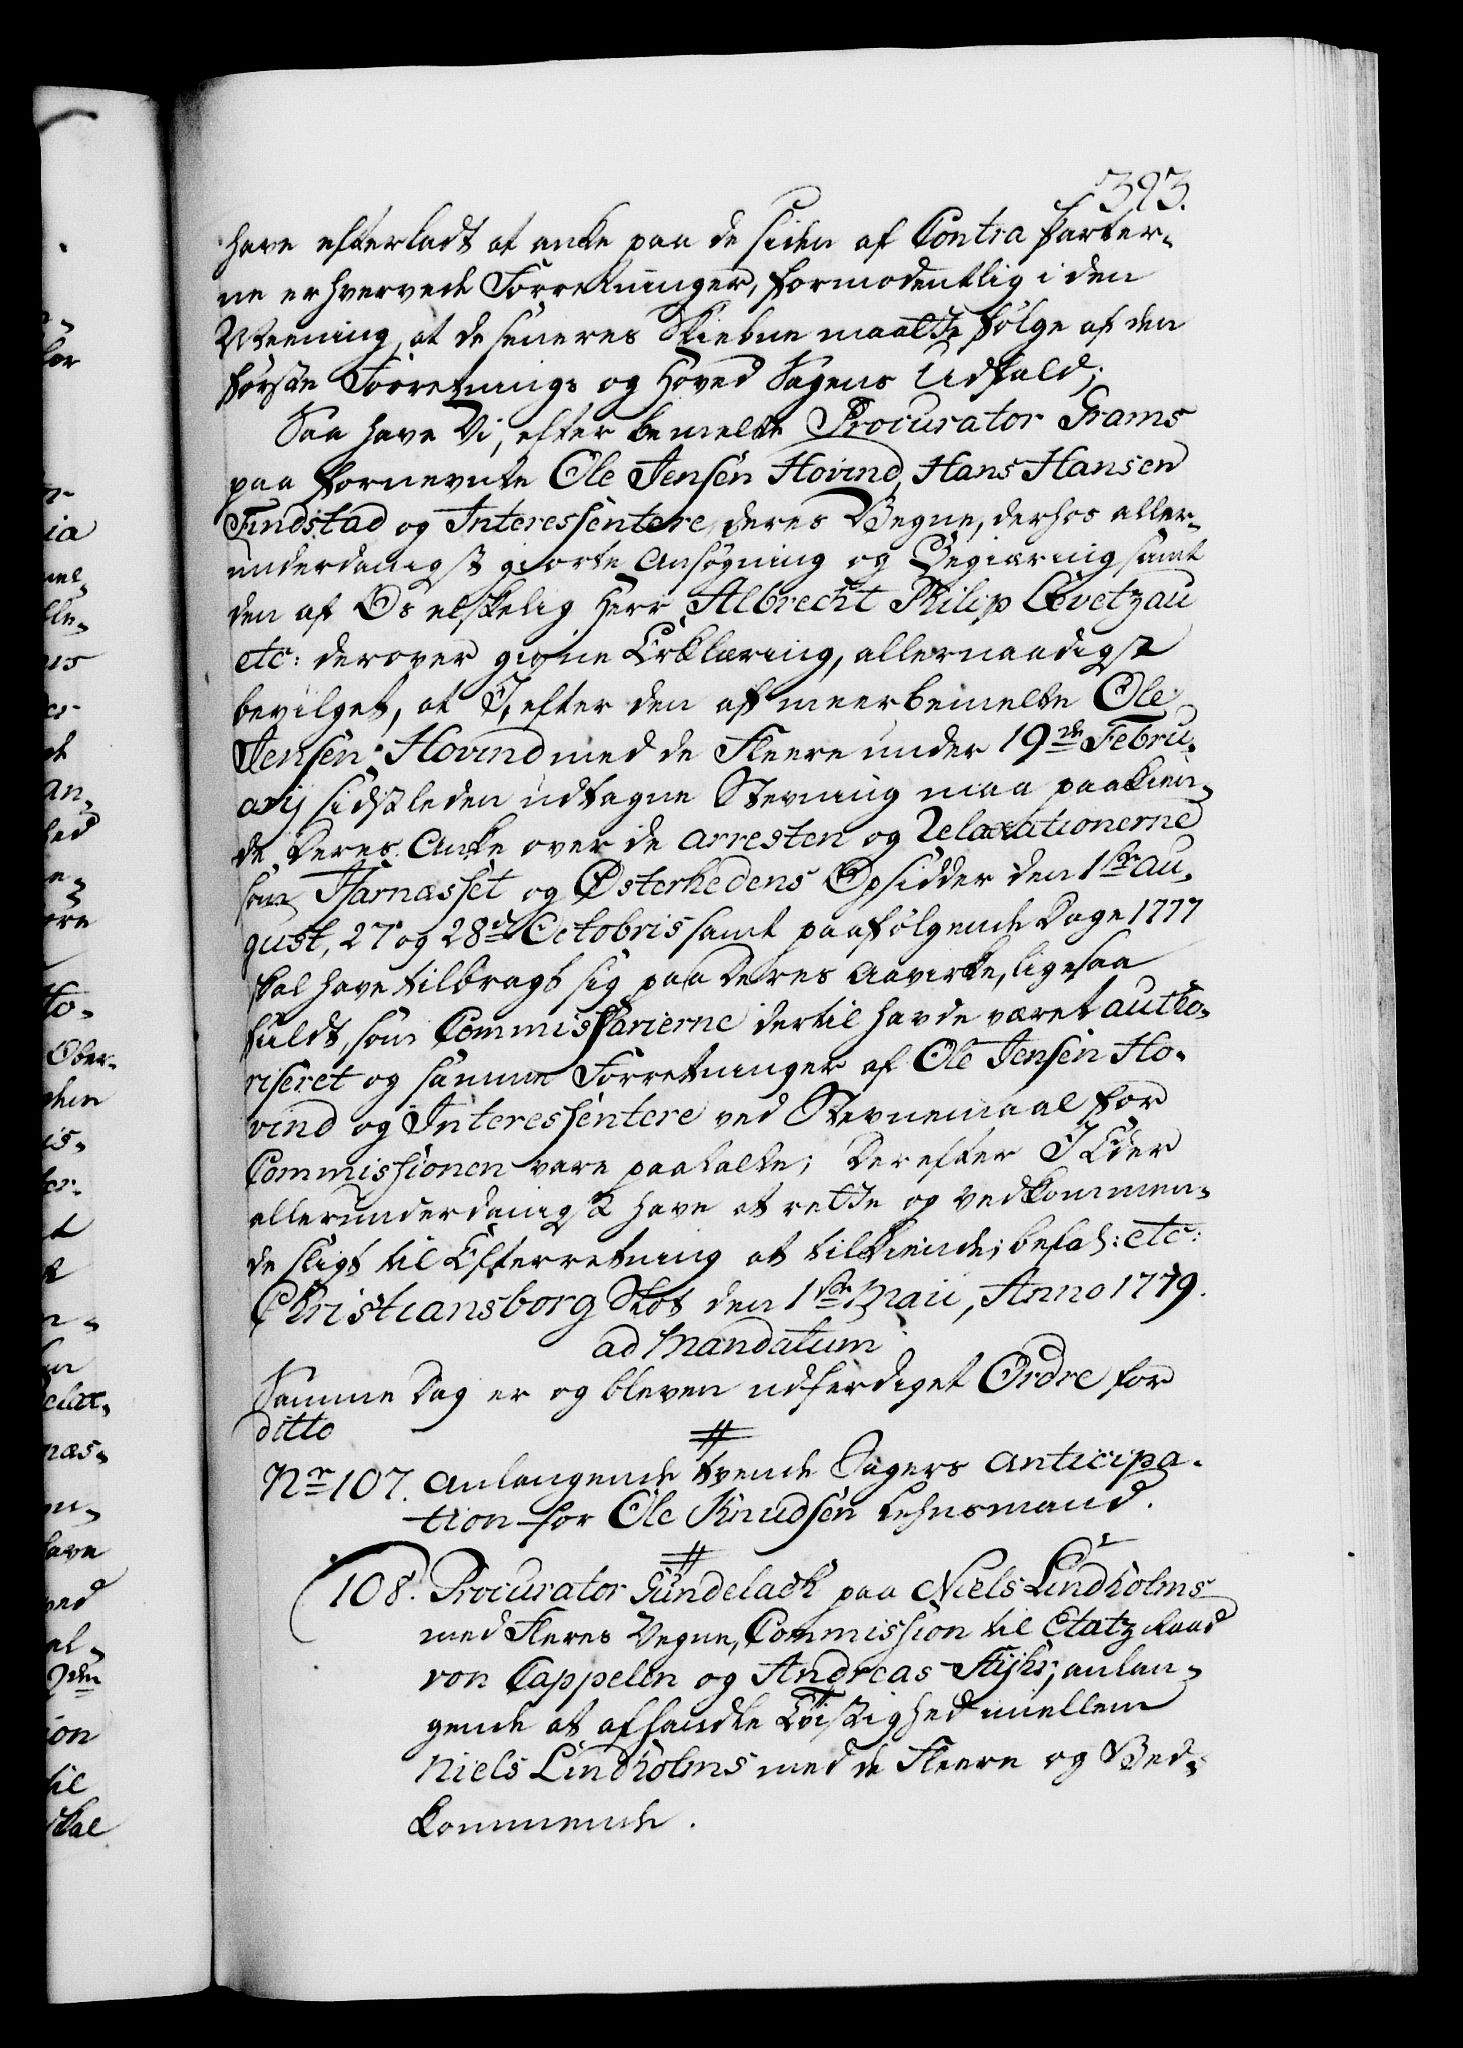 393.
have efterladt at anke paa de siden af Contra Parter-
ne erhvervede Forretninger, formodentlig i den
Meening, at de seneres Skiebne maatte følge af den
første Forretnings og Hoved Sagens Udfald;
Saa have Vi, efter bemelte Procurator Grams
paa fornevnte Ole Jensen Hovind, Hans Hansen
Findstad og Interessentere, deres Vegne, derhos aller-
underdanigst giorte Ansøgning og Begiæring samt
den af Os elskelig Herr Albrecht Philip Levetzau
etc: derover givne Erklæring, allernaadigst
bevilget, at I, efter den af meerbemelte Ole
Jensen Hovind med de Fleere under 19de Febru-
arij sidstleden udtagne Stevning maa paakien-
de Deres Anke over de arresten og Relaxationerne
som Harnæsset og Østerhedens Opsidder den 1ste Au-
gust, 27 og 28de Octobris samt paafølgende Dage 1777
skal have tilbragt sig paa Deres Aavirke, ligesaa
fuldt, som Commissarierne dertil havde været autho-
riseret og samme Forretninger af Ole Jensen Ho-
vind og Interessentere ved Stevnemaal for
Commissionen vare paatalte; Derefter I Eder
allerunderdanigst have at rette og vedkommen-
de sligt til Efterretning at tilkiende; befal: etc:
Christiansborg Slot den 1ste Maii, Anno 1779.
ad Mandatum
Samme Dag er og bleven udferdiget Ordre for
ditto
Nr 107. Anlangende tvende Sagers Anticipa-
tion for Ole Knudsen Lehnsmand.
108. Procurator Gündelach paa Niels Lindholms
med Fleres Vegne, Commission til Etatz Raad
von Cappelen og Andreas, anlan-
gende at afhandle Tvistighed mellem
Niels Lindholms med de Fleere og Ved-
kommende.